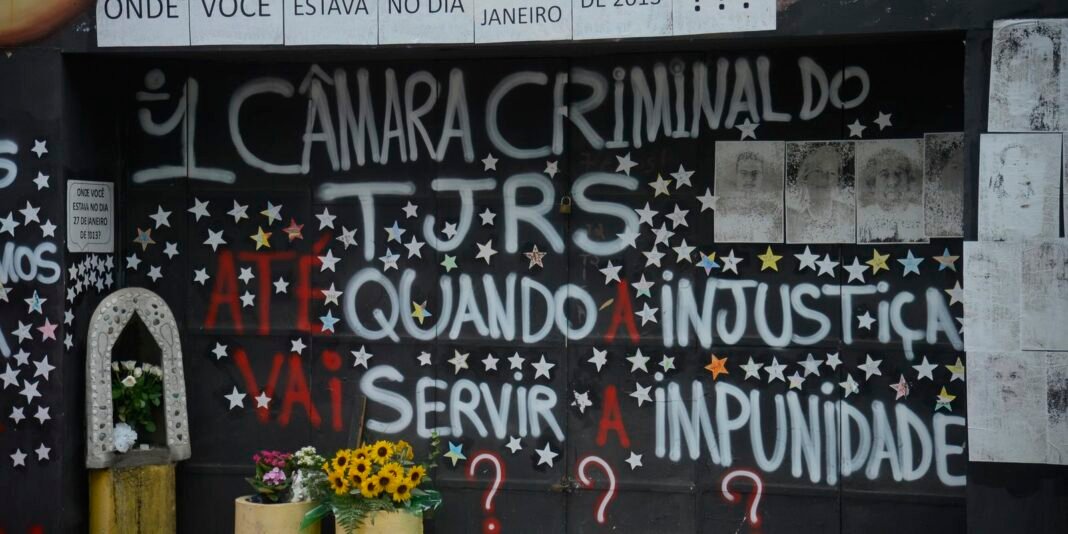 ONDE VOCÊ ESTAVA NO DIA JANEIRO DE 2013 ???
1 CÂMARA CRIMINAL DO
TJRS
ATÉ QUANDO A INJUSTIÇA
VAI SERVIR A IMPUNIDADE
? ? ?
ONDE VOCÊ
ESTAVA NO DIA
27 DE JANEIRO
DE 2013?
S
MOS
A